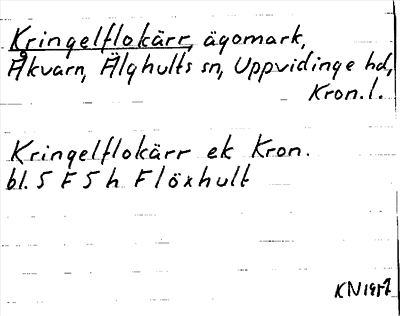 Kringelflokärr, ägomark,
Åkvarn, Älghults sn, Uppvidinge hd,
Kron.l.
Kringelflokärr ek Kron.
bl. 5 F 5 h Flöxhult